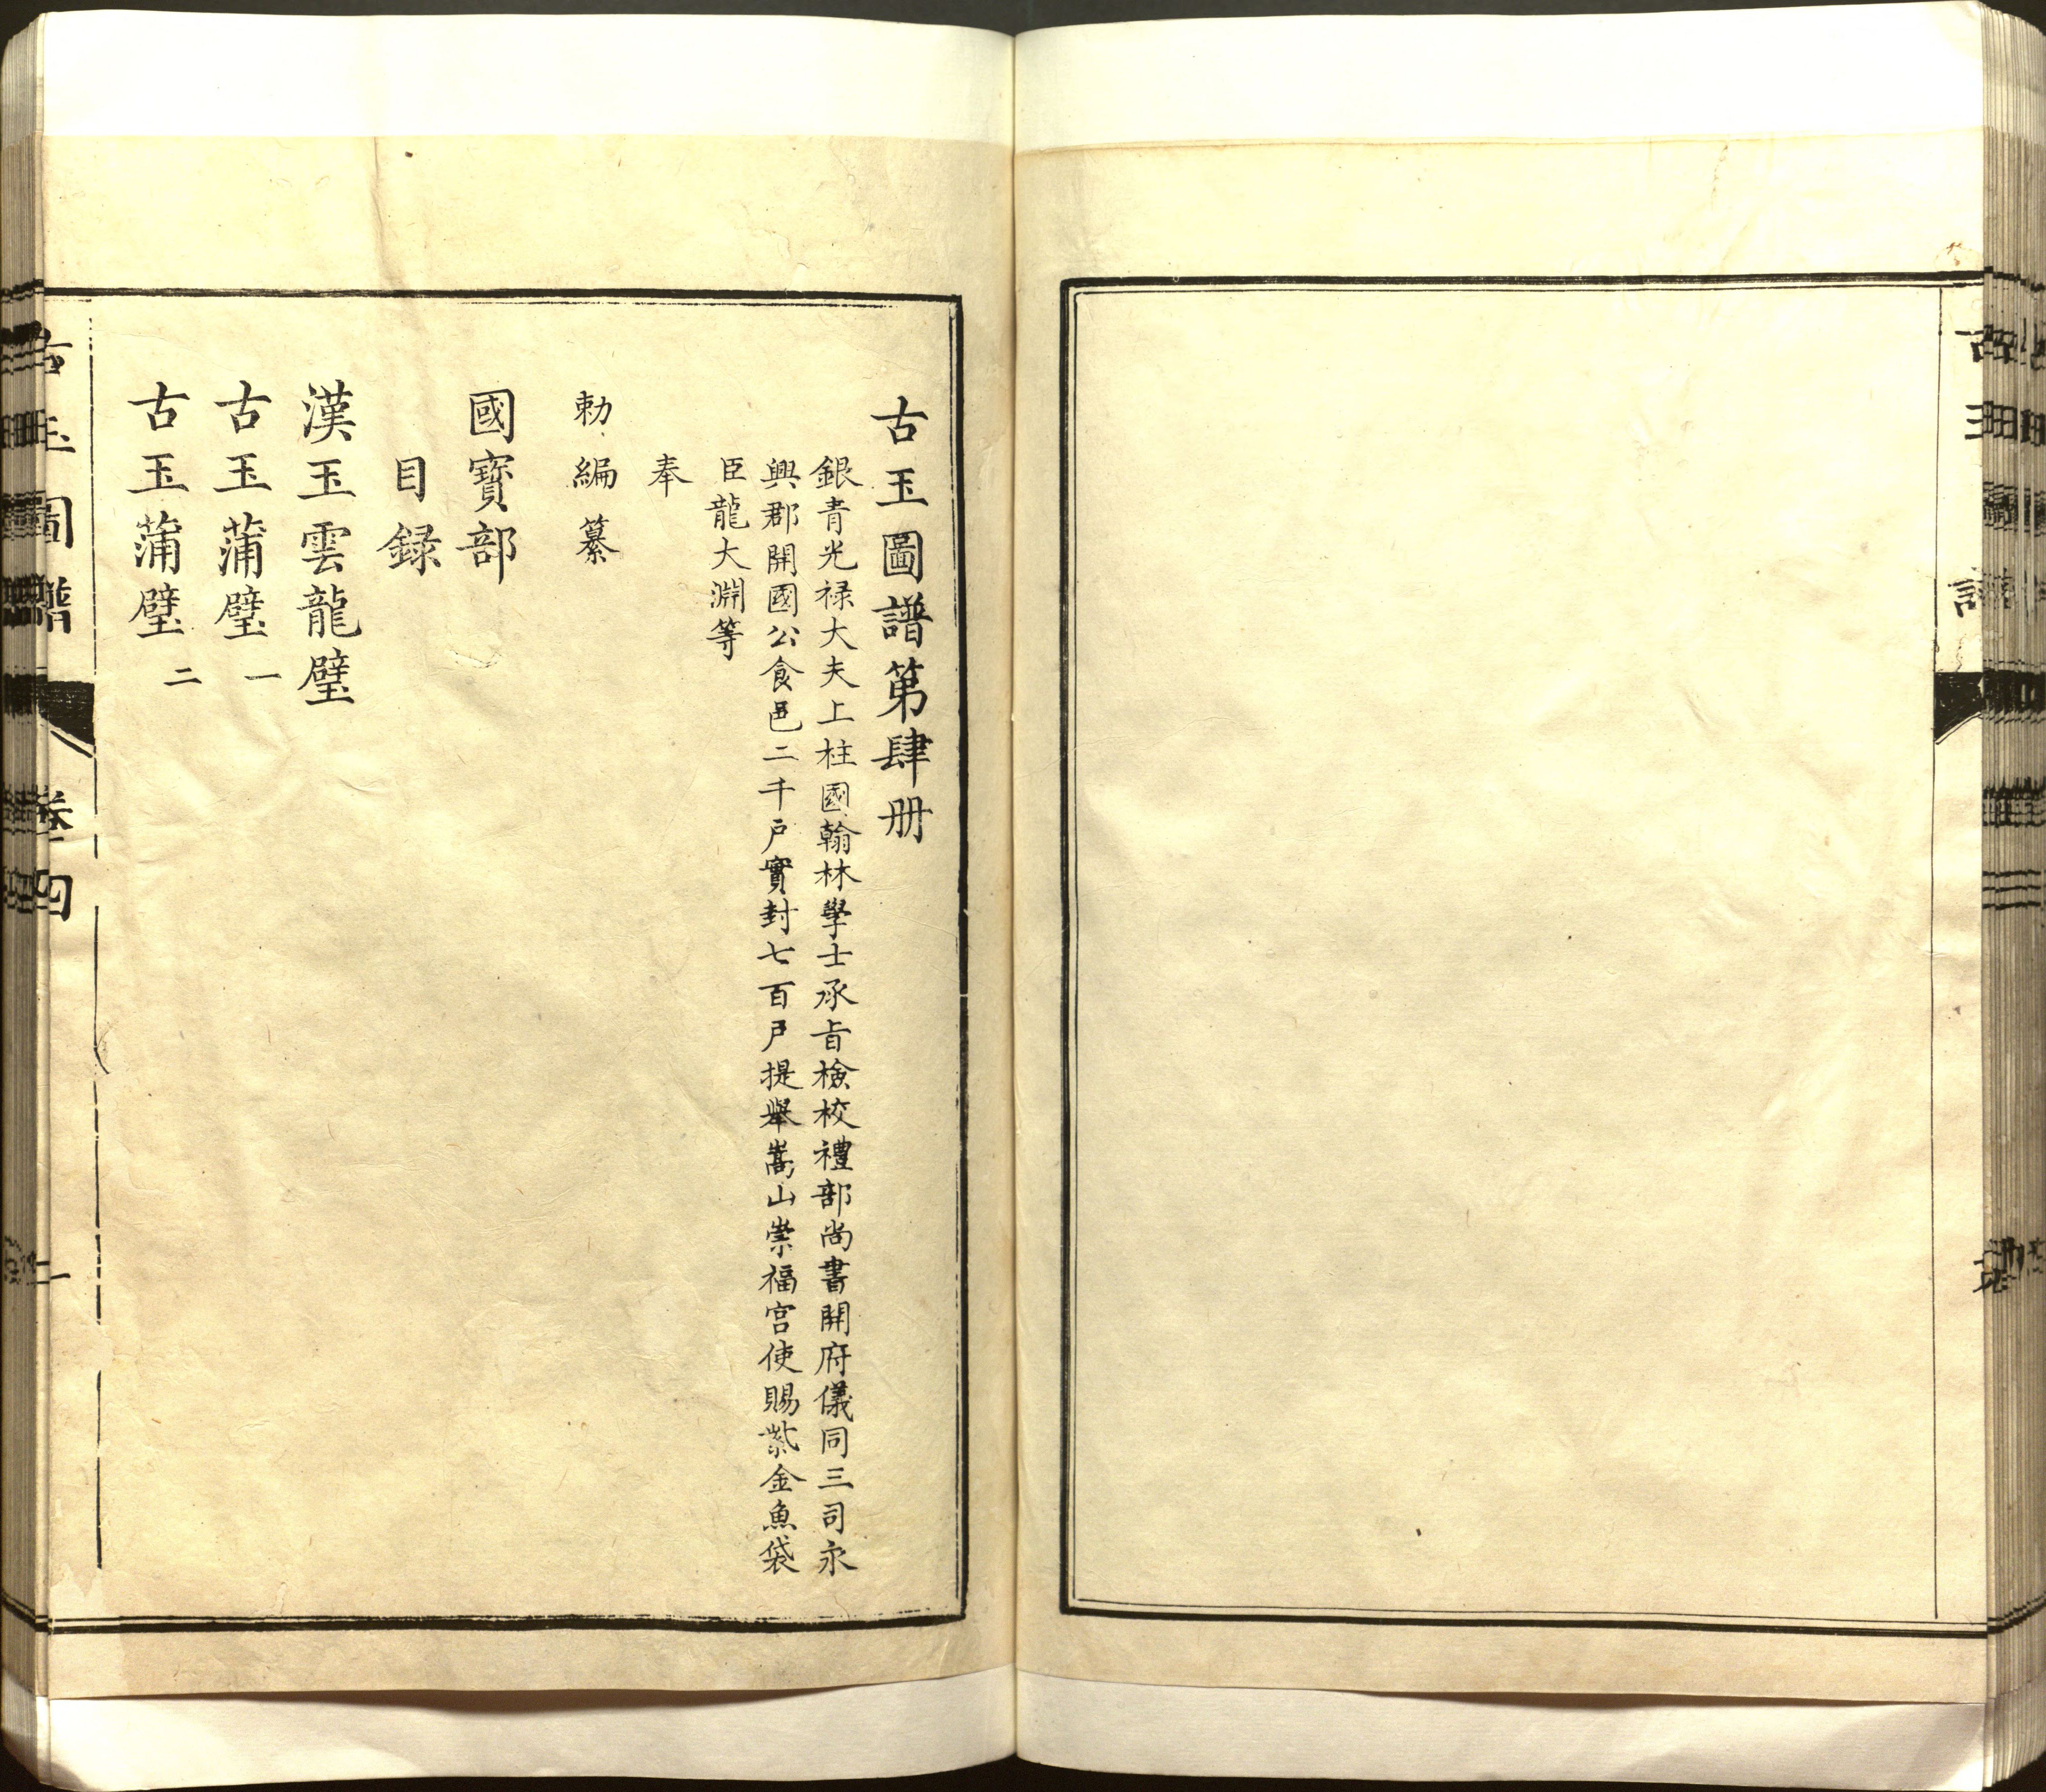 古玉圖譜第肆册
銀青光禄大夫上柱國翰林學士承旨檢校禮部尚書開府儀同三司永
興郡開國公食邑二千戶實封七百戶提舉嵩山崇福宫使賜紫金魚袋
臣龍大淵等
奉
勅編纂
國寶部
目録
漢玉雲龍璧
古玉蒲璧一
古玉蒲璧二
古玉圖譜 卷四 一